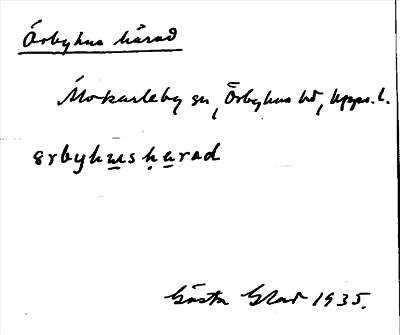 Örbyhus härad
Älvkarleby sn, Örbyhus hd, Upps. l.
ørbyhusḥarad
Gösta 1935.